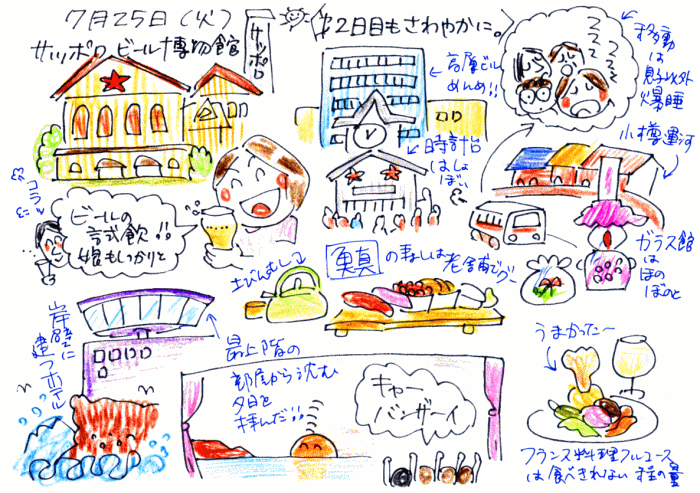 7月25日(火)
サッポロビール博物館
サッポロ
2日目もさわやかに。
高層ビル
めんめ!!
時計台
はしょ
ぼい
移動
は
息子以外
爆睡
ZZZZ
ZZZZ
小樽運河
ガラス館
は
ほの
ぼのと
コラッ
ビールの
試飲!!
娘もしっかりと
土びんむし
魚真
の寿しは老舗でグー
岸壁に
建つホテル
最上階の
部屋から沈む
夕日を
拝んだ!!
キャー
バンザーイ
うまかった〜
フランス料理フルコース
は食べきれない程の量